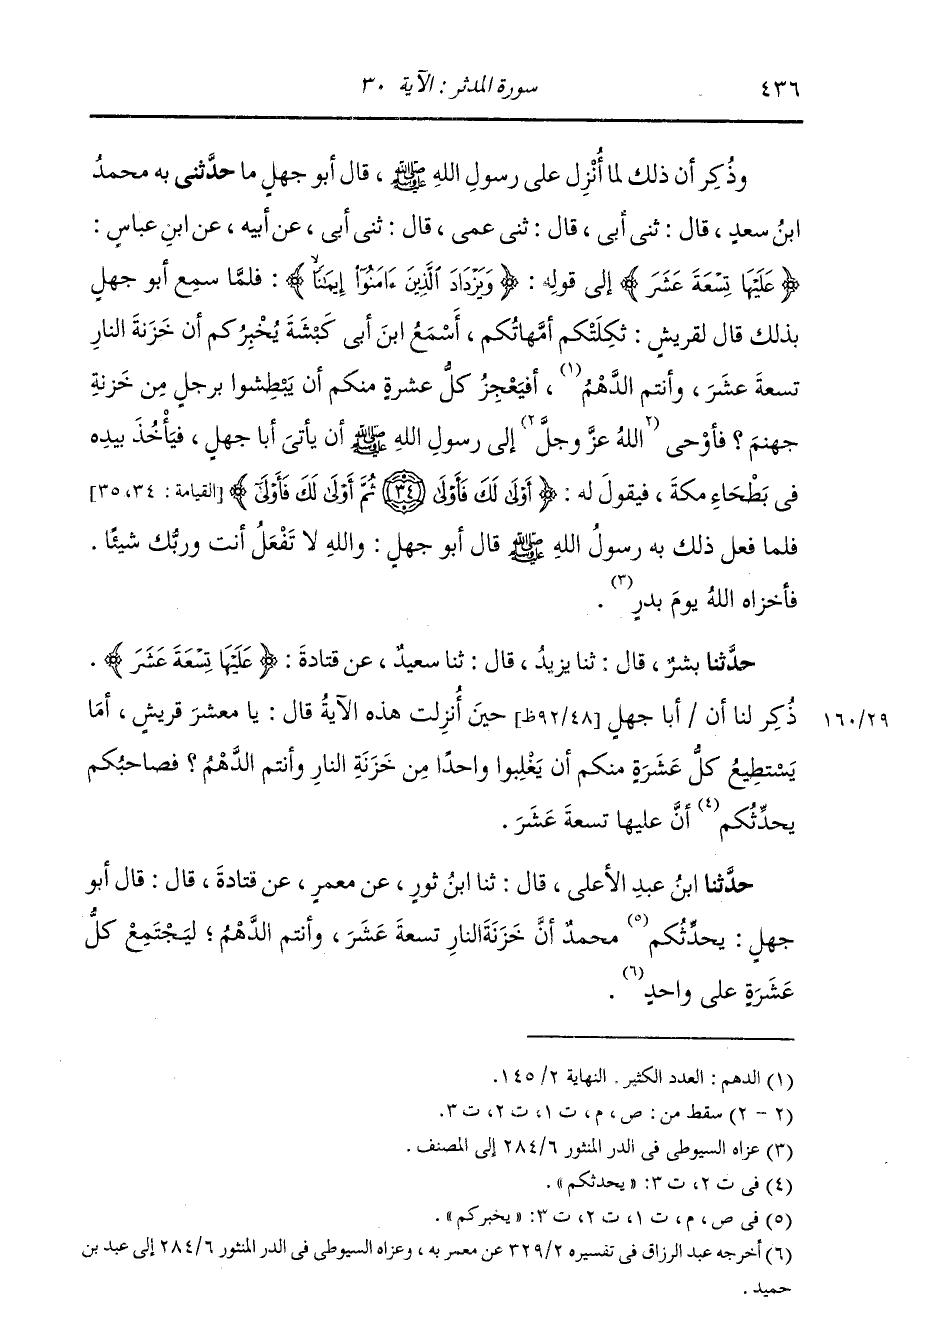 ٤٣٦
سورة المدثر : الآية ٣٠
وذُكِر أن ذلك لما أُنْزِل على رسولِ اللهِ ﷺ ، قال أبو جهلٍ ما حدَّثنى به محمدُ
ابنُ سعدٍ ، قال : ثنى أبى ، قال : ثنى عمى ، قال : ثنى أبى ، عن أبيه ، عن ابنِ عباسٍ :
﴿ عَلَيْهَا تِسْعَةَ عَشَرَ ﴾ إلى قولِه : ﴿ وَيَزْدَادَ ٱلَّذِينَ ءَامَنُوٓا۟ إِيمَٰنًاۙ ﴾ : فلمَّا سمِع أبو جهلٍ
بذلك قال لقريشٍ : ثكِلَتْكم أمَّهاتُكم ، أَسْمَعُ ابنَ أبى كَبْشَةَ يُخْبِرُكم أن خَزَنةَ النارِ
تسعةَ عشَرَ ، وأنتم الدَّهْمُ(١) ، أفيَعْجِزُ كلُّ عشرةٍ منكم أن يَبْطِشوا برجلٍ مِن خَزنةِ
جهنمَ ؟ فأوْحى (٢ اللهُ عزَّ وجلَّ ٢) إلى رسولِ اللهِ ﷺ أن يأتىَ أبا جهلٍ ، فيَأْخُذَ بيدِه
فى بَطْحَاءِ مكةَ ، فيقولَ له : ﴿ أَوْلَىٰ لَكَ فَأَوْلَىٰ (٣٤) ثُمَّ أَوْلَىٰ لَكَ فَأَوْلَىٰٓ ﴾ [القيامة : ٣٤، ٣٥]
فلما فعل ذلك به رسولُ اللهِ ﷺ قال أبو جهلٍ : واللهِ لا تَفْعَلُ أنت وربُّك شيئًا .
فأخزاه اللهُ يومَ بدرٍ(٣) .
حدَّثنا بشرٌ ، قال : ثنا يزيدُ ، قال : ثنا سعيدٌ ، عن قتادةَ : ﴿ عَلَيْهَا تِسْعَةَ عَشَرَ ﴾ .
ذُكِر لنا أن / أبا جهلٍ [٩٢/٤٨ظ] حينَ أُنزِلت هذه الآيةُ قال : يا معشرَ قريشٍ ، أمَا ١٦٠/٢٩
يَسْتطِيعُ كلُّ عَشَرَةٍ منكم أن يَغْلِبوا واحدًا مِن خَزَنَةِ النارِ وأنتم الدَّهْمُ ؟ فصاحبُكم
يحدِّثُكم(٤) أنَّ عليها تسعةَ عَشَرَ .
حدَّثنا ابنُ عبدِ الأعلى ، قال : ثنا ابنُ ثورٍ ، عن معمرٍ ، عن قتادةَ ، قال : قال أبو
جهلٍ : يحدِّثُكم(٥) محمدٌ أنَّ خَزَنَةَالنارِ تسعةَ عَشَرَ ، وأنتم الدَّهْمُ ؛ ليَجْتَمِعْ كلُّ
عَشَرَةٍ على واحدٍ(٦) .
(١) الدهم : العدد الكثير . النهاية ٢/ ١٤٥.
(٢ - ٢) سقط من : ص ، م ، ت ١، ت ٢، ت ٣.
(٣) عزاه السيوطى فى الدر المنثور ٢٨٤/٦ إلى المصنف .
(٤) فى ت ٢، ت ٣: « يحدثكم » .
(٥) فى ص ، م ، ت ١، ت ٢، ت ٣: « يخبركم » .
(٦) أخرجه عبد الرزاق فى تفسيره ٣٢٩/٢ عن معمر به ، وعزاه السيوطى فى الدر المنثور ٢٨٤/٦ إلى عبد بن
حميد .